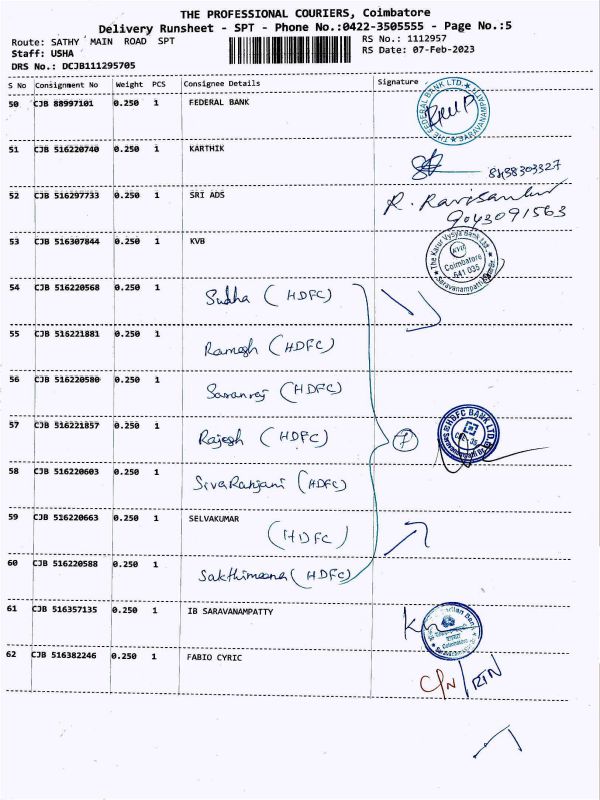 THE PROFESSIONAL COURIERS, Coimbatore
Delivery Runsheet - SPT - Phone No.:0422-3505555 - Page No.:5
Route: SATHY MAIN ROAD SPT RS No.: 1112957
Staff: USHA RS Date: 07-Feb-2023
DRS No.: DCJB111295705
S No Consignment No Weight PCS Consignee Details Signature
50 CJB 88997101 0.250 1 FEDERAL BANK
THE FEDERAL BANK LTD. SARAVANAMPATTI
51 CJB 516220740 0.250 1 KARTHIK
8438303327
52 CJB 516297733 0.250 1 SRI ADS R. Ravisankar
9043091563
53 CJB 516307844 0.250 1 KVB
The Karur Vysya Bank Ltd. KVB Coimbatore 641 035 Saravanampatti
54 CJB 516220568 0.250 1 Sudha (HDFC)
55 CJB 516221881 0.250 1 Ramesh (HDFC)
56 CJB 516220580 0.250 1 Saranraj (HDFC)
57 CJB 516221857 0.250 1 Rajesh (HDFC) 7
HDFC BANK LTD
58 CJB 516220603 0.250 1 SivaRanjani (HDFC)
59 CJB 516220663 0.250 1 SELVAKUMAR
(HDFC)
60 CJB 516220588 0.250 1 Sakthimeena (HDFC)
61 CJB 516357135 0.250 1 IB SARAVANAMPATTY
62 CJB 516382246 0.250 1 FABIO CYRIC
C/N / RTN